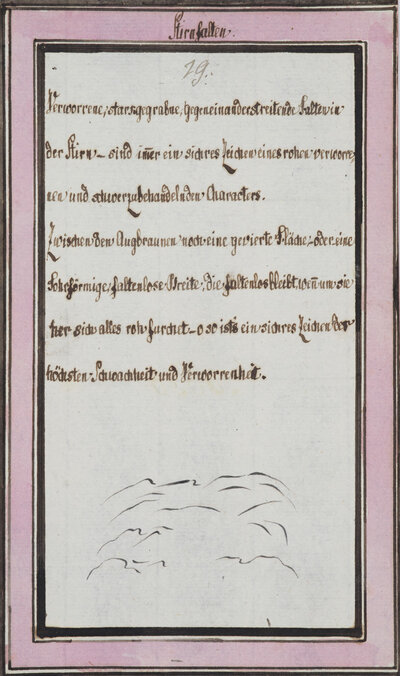 Stirnfalten.
29.
Verworrene, starkgegrabne, gegeneinanderstreitende Falten in
der Stirn – sind im̅er ein sichres Zeichen eines rohen verworr-
nen und schwerzubehandelnden Characters.
Zwischen den Augbraunen noch eine gevierte Fläche, oder eine
förmige, faltenlose Breite, die faltenlos bleibt, wen̅ um sie
her sich alles roh furchet – o so ists ein sichres Zeichen der
höchsten Schwachheit und Verworrenheit.